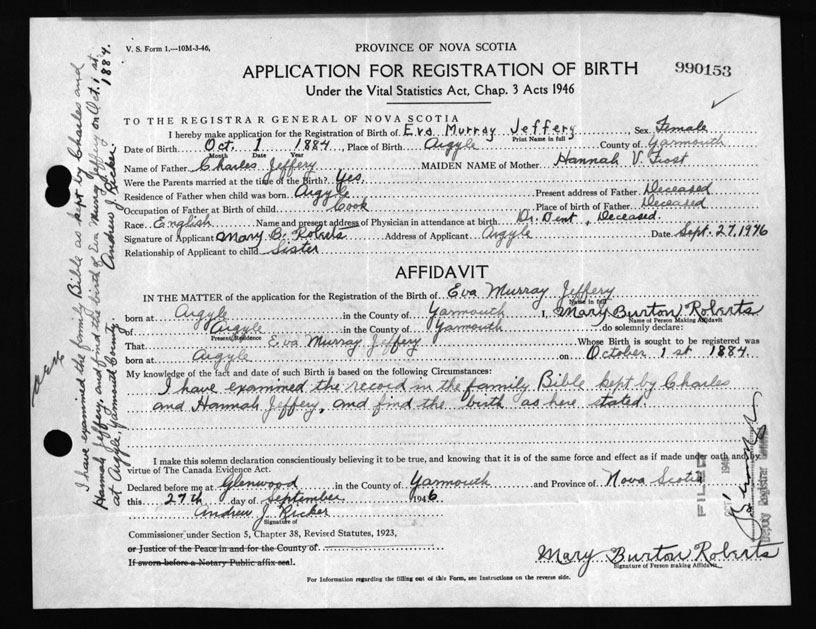 V. S. Form 1.—10M-3-46,
PROVINCE OF NOVA SCOTIA
APPLICATION FOR REGISTRATION OF BIRTH
990153
Under the Vital Statistics Act, Chap. 3 Acts 1946
TO THE REGISTRAR GENERAL OF NOVA SCOTIA
I hereby make application for the Registration of Birth of Eva Murray Jeffery, Sex Female
Print Name in full
Date of Birth Oct. 1 1884, Place of Birth Argyle County of Yarmouth
Month Date Year
Name of Father Charles Jeffery MAIDEN NAME of Mother Hannah V. Frost
Were the Parents married at the time of the Birth? Yes
Residence of Father when child was born Argyle Present address of Father Deceased
Occupation of Father at Birth of child Cook Place of birth of Father Deceased
Race English Name and present address of Physician in attendance at birth Dr. Dent, Deceased.
Signature of Applicant Mary B. Roberts Address of Applicant Argyle Date Sept. 27, 1946
Relationship of Applicant to child Sister
AFFIDAVIT
IN THE MATTER of the application for the Registration of the Birth of Eva Murray Jeffery
Name in full
born at Argyle in the County of Yarmouth I, Mary Burton Roberts
Name of Person Making Affidavit
of Argyle in the County of Yarmouth do solemnly declare:
Present Residence
That Eva Murray Jeffery Whose Birth is sought to be registered was
born at Argyle on October 1st 1884.
My knowledge of the fact and date of such Birth is based on the following Circumstances:
I have examined the record in the family Bible kept by Charles
and Hannah Jeffery, and find the birth as here stated.
I make this solemn declaration conscientiously believing it to be true, and knowing that it is of the same force and effect as if made under oath and by
virtue of The Canada Evidence Act.
Declared before me at Glenwood in the County of Yarmouth and Province of Nova Scotia
this 27th day of September 1946
Andrew J. Ricker
Signature of
Commissioner under Section 5, Chapter 38, Revised Statutes, 1923,
or Justice of the Peace in and for the County of
If sworn before a Notary Public affix seal.
Mary Burton Roberts
Signature of Person making Affidavit
For Information regarding the filling out of this Form, see Instructions on the reverse side.
I have examined the family Bible as kept by Charles and
Hannah Jeffery, and find the birth of Eva Murray Jeffery on Oct. 1st
1884.
at Argyle, Yarmouth County
Andrew J. Ricker.
FILED
1946
Deputy Registrar General